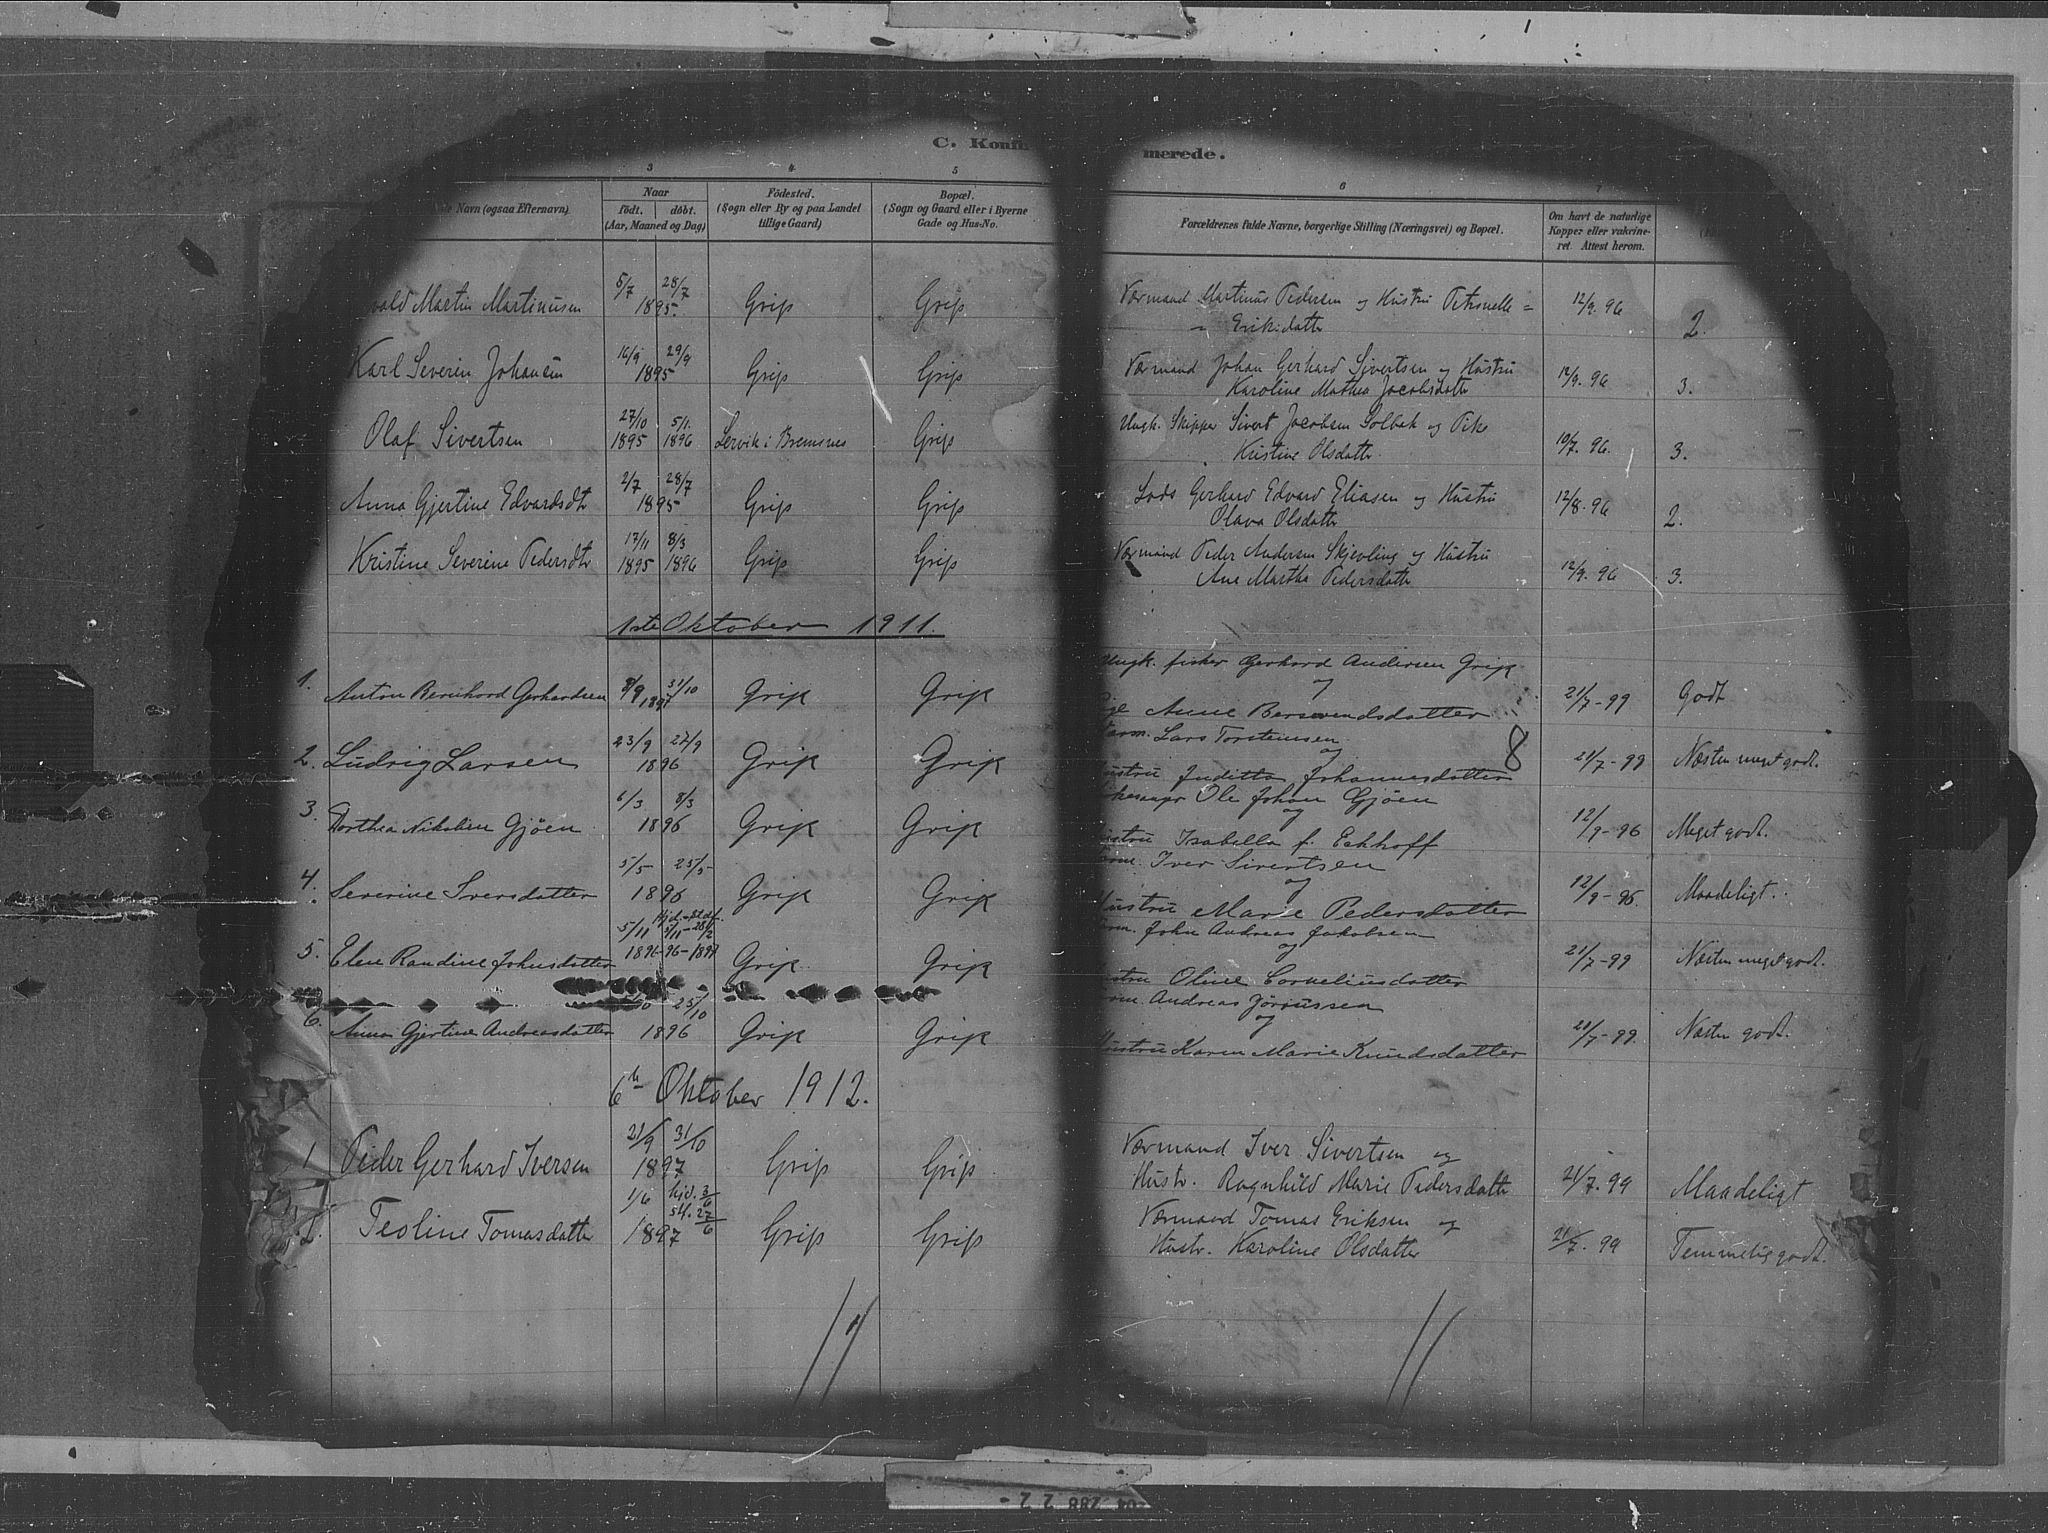 C. Konfi merede.
3 4 5 6 7
Navn (ogsaa Efternavn)
Naar
født. døbt.
(Aar, Maaned og Dag)
Fødested.
(Sogn eller By og paa Landet
tillige Gaard)
Bopæl.
(Sogn og Gaard eller i Byerne
Gade og Hus-No.
Forældrenes fulde Navne, borgerlige Stilling (Næringsvei) og Bopæl.
Om havt de naturlige
Kopper eller vakcine-
ret. Attest herom.
vald Martin Martinusen 5/7 28/7 1895. Grip Grip Værmand Martinus Pedersen og Hustru Petronelle =
= Eriksdatter 12/9. 96 2.
Karl Severin Johansen 16/9 29/9 1895 Grip Grip Værmand Johan Gerhard Sivertsen og Hustru
Karoline Mathea Jacobsdatter 12/9. 96 3.
Olaf Sivertsen 27/10 1895 5/1. 1896 Lervik i Bremsnes Grip Ungk. Skipper Sivert Jacobsen Solbak og Pike
Kristine Olsdatter 10/7. 96. 3.
Anna Gjertine Edvardsdtr 2/7 28/7 1895 Grip Grip Lods Gerhard Edvard Eliasen og Hustru
Olava Olsdatter 12/8. 96 2.
Kristine Severine Pedersdtr 17/11 1895 8/3 1896 Grip Grip Værmand Peder Andersen Skjevling og Hustru
Ane Martha Pedersdatter 12/9. 96 3.
1ste Oktober 1911.
1. Anton Bernhard Gerhardsen 8/9 31/10 1897 Grip Grip Ungk. fisker Gerhard Andersen Grip
og
Anne Bersvendsdatter 21/7-99 Godt
2. Ludvig Larsen 23/9 27/9 1896 Grip Grip Lars Torsteinsen 8
og
Hustru Juditta Johannesdatter 21/7-99 Næsten meget godt.
3. Dorthea Nikoline Gjøen 6/3 8/3 1896 Grip Grip Ole Johan Gjøen
og
Hustru Isabella f. Eckhoff 12/9-96 Meget godt.
4. Severine Iversdatter 5/5 25/5 1896 Grip Grip Iver Sivertsen
og
Hustru Marie Pedersdatter 12/9-96. Maadeligt.
5. Elen Randine Johnsdatter 5/11 1896 96-1897 Grip Grip John Andreas Jakobsen
og
Hustru Oline Corneliusdatter 21/7-99 Næsten meget godt.
6. Anna Gjertine Andreasdatter 25/10 1896 Grip Grip Andreas Jørgussen
og
Hustru Karen Marie Knudsdatter 21/7-99. Næsten godt.
6te Oktober 1912.
1 Peder Gerhard Iversen 21/9 31/10 1897 Grip Grip Værmand Iver Sivertsen og
Hustr. Ragnhild Marie Pedersdatter 21/7. 99 Maadeligt
2. Teoline Tomasdatter 1/6 hjd. 3/6 st. 27/6 1897 Grip Grip Værmand Tomas Eriksen og
Hustr. Karoline Olsdatter 21/7. 99 Temmelig godt.